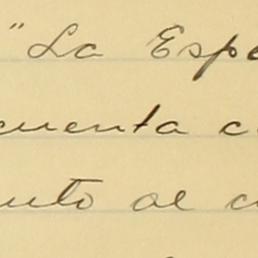 "La Espe
cuenta c
nto al c